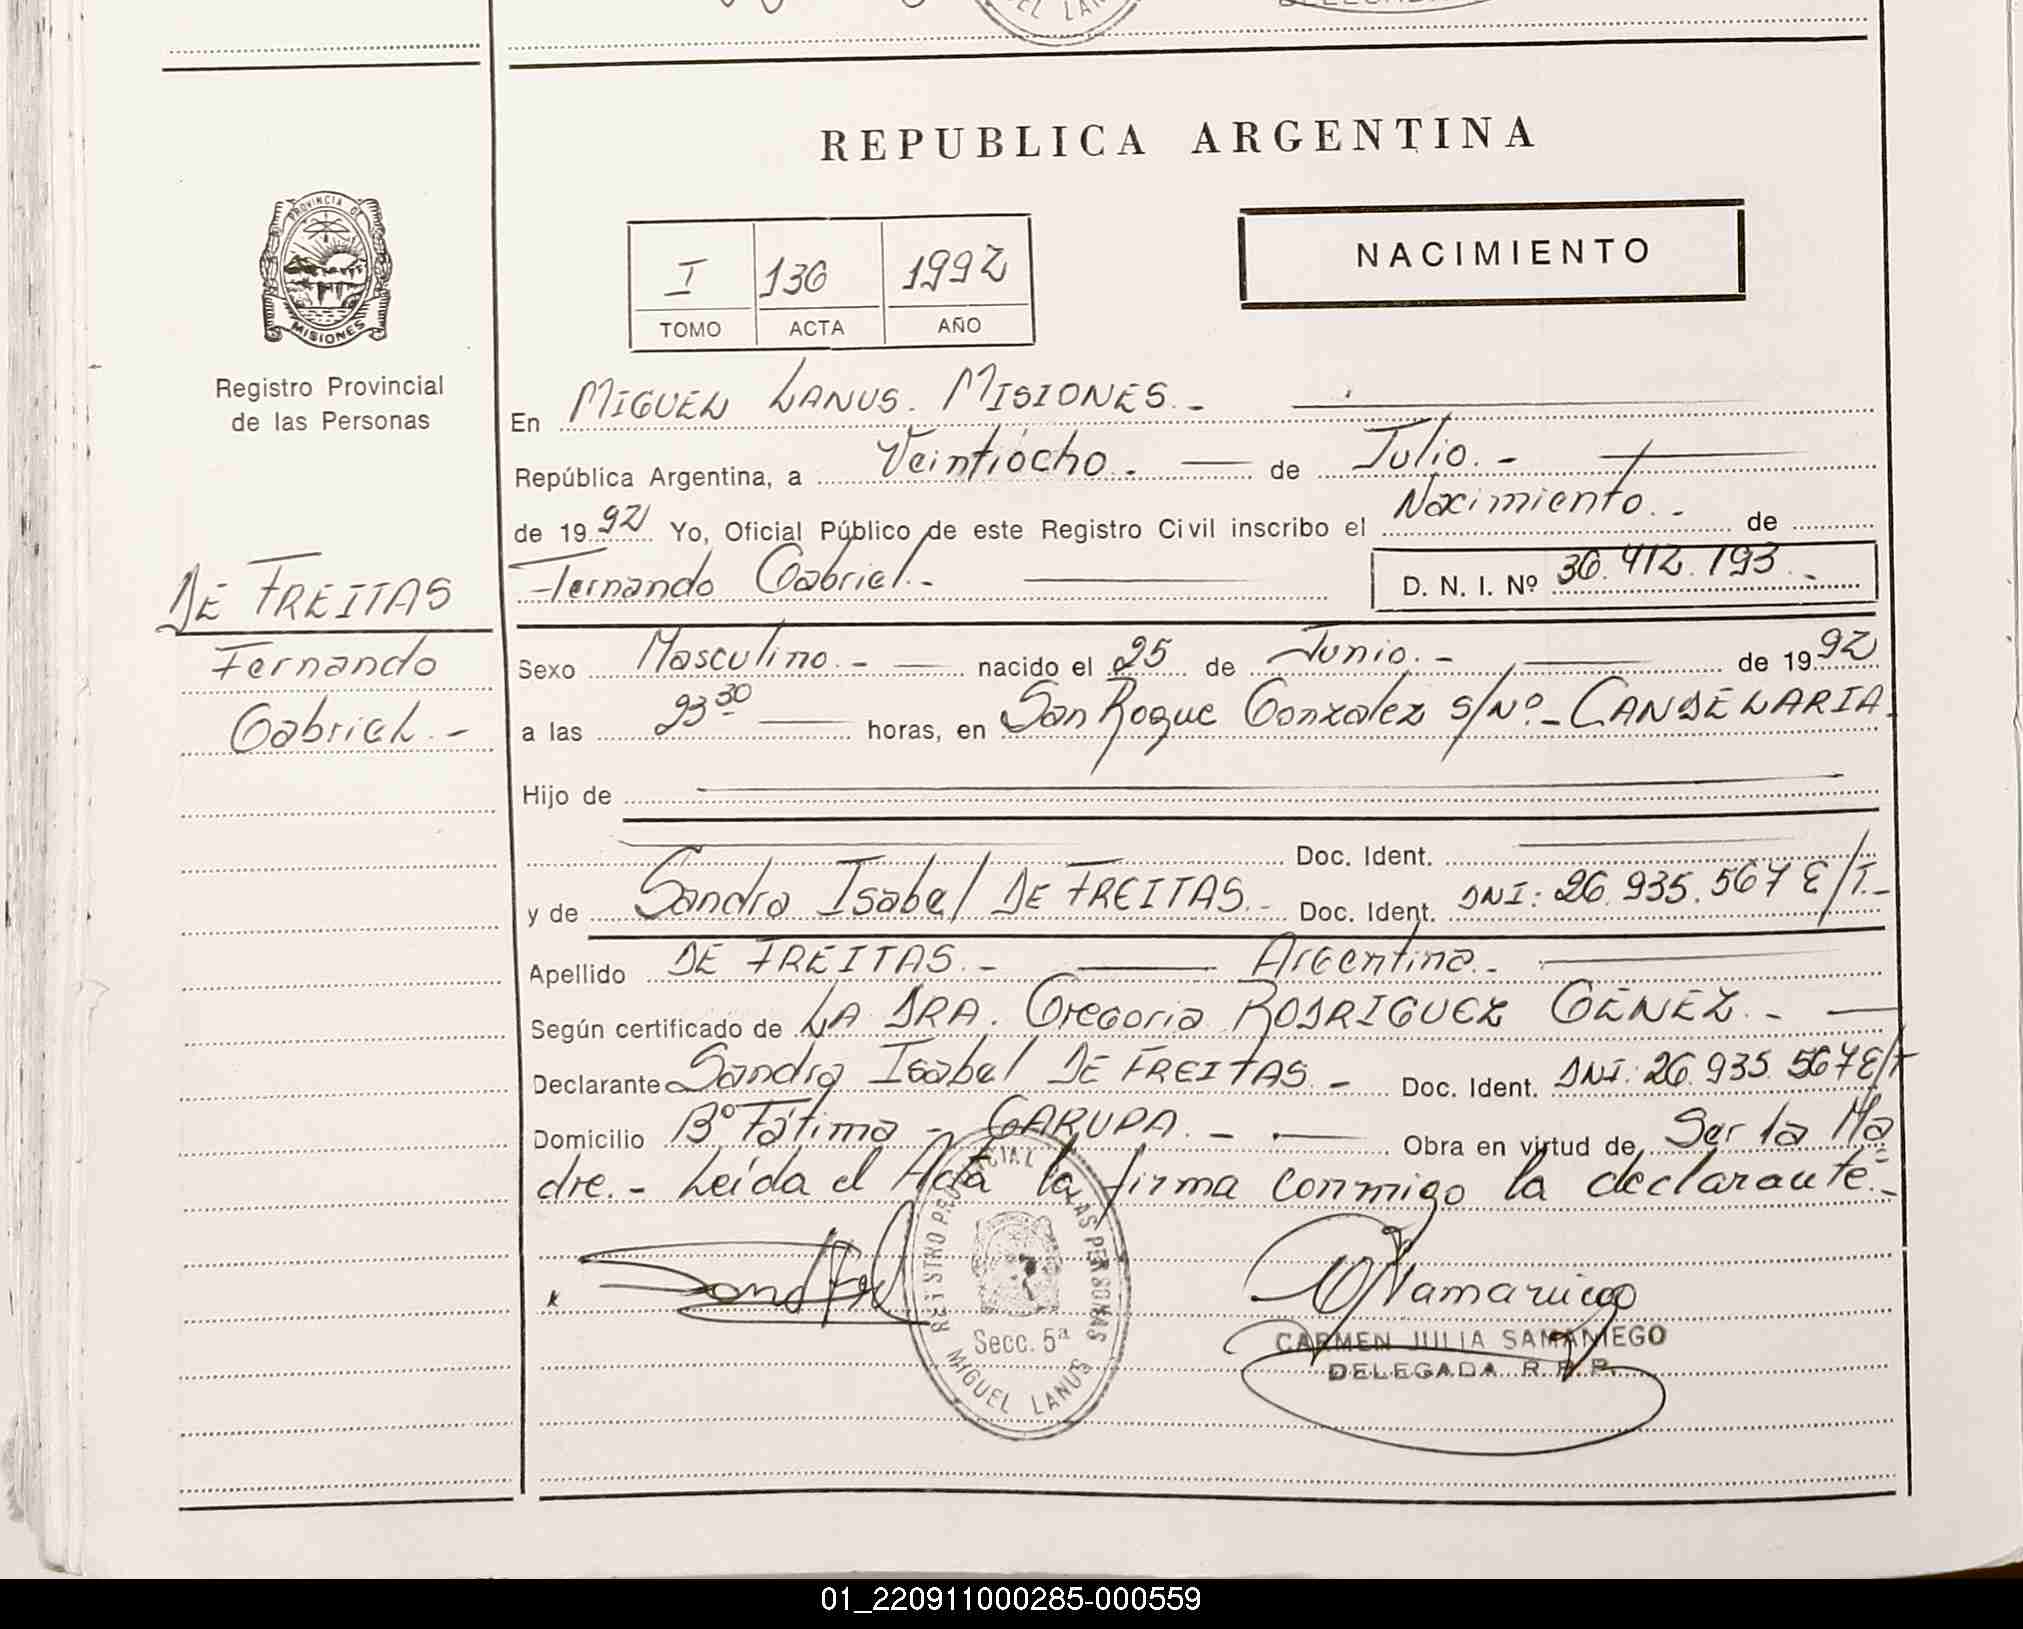 REPUBLICA ARGENTINA
PROVINCIA DE
MISIONES
Registro Provincial
de las Personas
I 130 1992
TOMO ACTA AÑO
NACIMIENTO
En MIGUEL LANUS. MISIONES.-
República Argentina, a Veintiocho.- de Julio.-
de 1992 Yo, Oficial Público de este Registro Civil inscribo el Nacimiento.- de
Fernando Gabriel.- D. N. I. Nº 36.412.193.-
DE FREITAS
Fernando
Gabriel.-
Sexo Masculino.- nacido el 25 de Junio.- de 1992
a las 23 30 horas, en San Roque Gonzalez s/Nº.- CANDELARIA.
Hijo de
Doc. Ident.
y de Sandra Isabel DE FREITAS.- Doc. Ident. DNI: 26.935.567 E/T.-
Apellido DE FREITAS.- Argentina.-
Según certificado de LA DRA. Gregoria RODRIGUEZ GENEZ.-
Declarante Sandra Isabel DE FREITAS.- Doc. Ident. DNI: 26.935.567 E/T
Domicilio Bº Fátima - GARUPA.- Obra en virtud de Ser la Ma
dre.- Leída el Acta la firma conmigo la declarante.-
REGISTRO PROVINCIAL DE LAS PERSONAS
Secc. 5ª
MIGUEL LANUS
CARMEN JULIA SAMANIEGO
DELEGADA R. P. P.
01_220911000285-000559